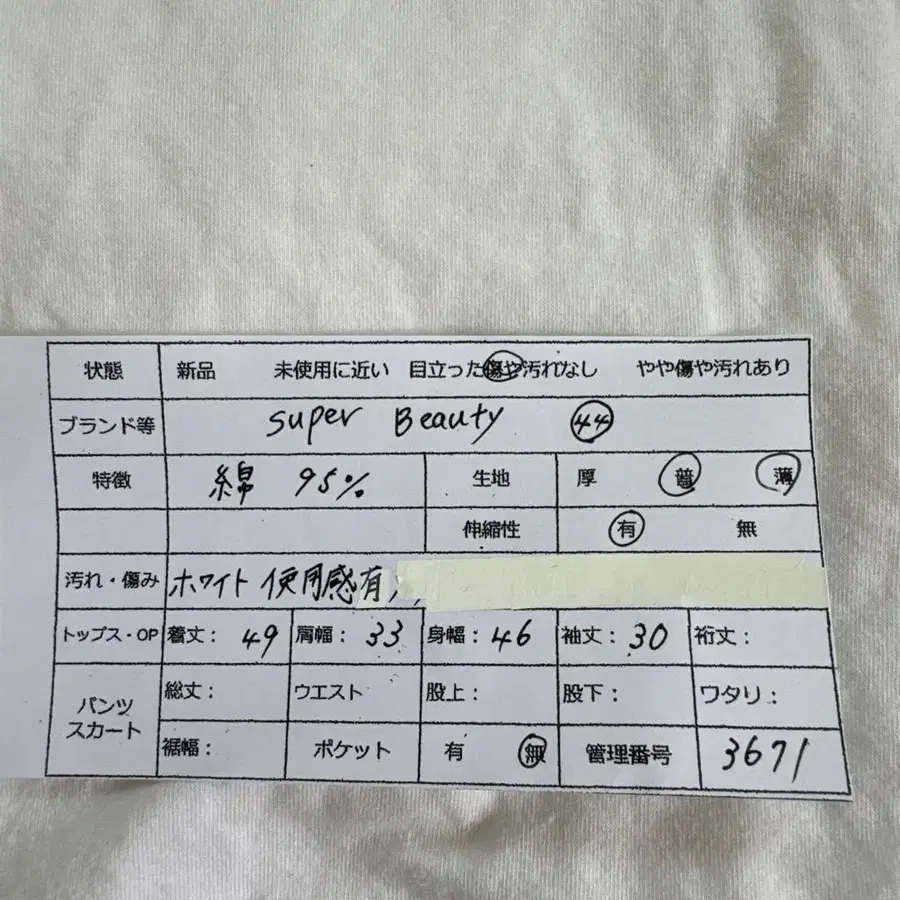 状態 新品 未使用に近い 目立った傷や汚れなし やや傷や汚れあり
ブランド等 super Beauty 44
特徴 綿 95% 生地 厚 普 薄
伸縮性 有 無
汚れ・傷み ホワイト 使用感有
トップス・OP 着丈: 49 肩幅: 33 身幅: 46 袖丈: 30 裄丈:
パンツ スカート 総丈: ウエスト 股上: 股下: ワタリ:
裾幅: ポケット 有 無 管理番号 3671